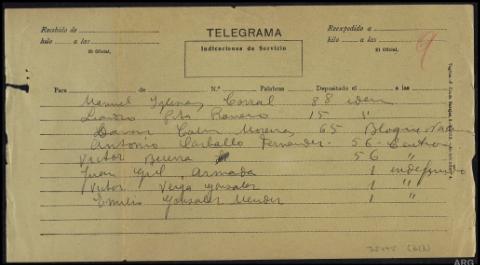 Recibido de
TELEGRAMA
Reexpedido a
hilo a las
Indicaciones de Servicio
hilo a las
El Oficial,
El Oficial,
9
Para de N.º Palabras Depositado el a las
Manuel Iglesias Corral 88 idem
Leandro Pita Romero 15 "
Moreno 65
Antonio Carballo Fernandez 56 Centro
Victor 56 "
Juan Gil Armada 1 indefinido
Victor Veiga Gonzalez 1 "
Emilio Gonzalez Mendez 1 "
ARG